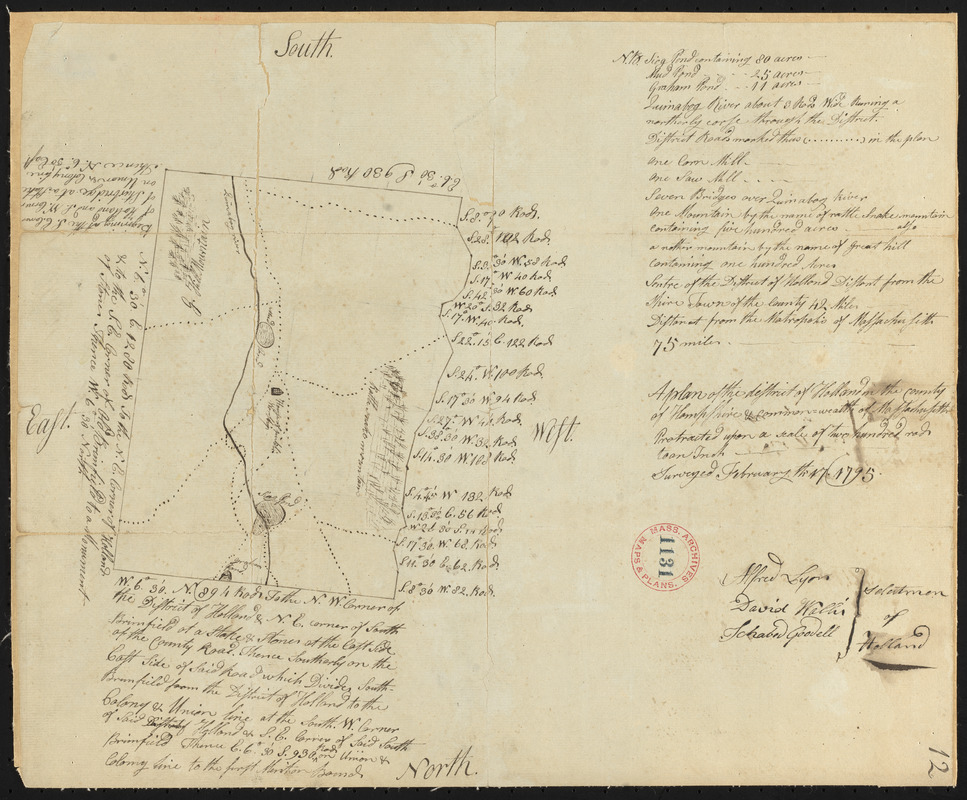 South.
N.B. Sieg Pond containing 80 acres
Mud Pond 25 acres
Graham Pond 11 acres
Quinabog River about 8 Rods Wide Runing a
northerly corse through the District.
District Roads marked thus (..........) in the plan
One Corn Mill
One Saw Mill
Seven Bridges over Quinabog River
One Mountain by the name of rattle Snake mountain
containing five hundred acres also
a nother mountain by the name of Great hill
containing one hundred Acres
Sentre of the District of Holland Distant from the
Shire Town of the County 42 Miles
Distanat from the Matropolis of Massachusitts
75 miles.
A plan of the district of Holland in the county
of Hampshire & commonwealth of Massachusetts
Protracted upon a scale of two hundred rods
to an Inch
Surveyed February th 17 1795.
MASS. ARCHIVES
1131
MAPS & PLANS.
Alfred Lyon
David Wallis
Goodell
Selectmen
of
Holland
12
E 6° 30' S 930 Rod
Begining at the S. E. Corner
of Holland and S. W. Corner
of Sturbridge at a Stake
on Union & Colony line
Thence N. 6° 30' East
N. 6° 30' E 1230 Rods to the N. E. Corner of Holland
& to the S. E. Corner of Old Brimfield to a Monument
of Stones Thence W. 6° 30' North
East.
West.
Quinabog River
Great Hill
Mountain
mud Pond
Meeting house
Rattle snake mountain
S. 8° 70 Rods
S. 28. 102 Rods
S. 3° 30' W. 58 Rods
S. 17° W 40 Rods
S. 42° 30' W 60 Rods
W 20° S. 32 Rods
S. 17° W. 40 Rods
S. 22° 15' E 122 Rods
S. 24° W. 100 Rods
S. 17° 30' W 94 Rods
S. 27° W 48 Rods
S. 38. 30 W. 36 Rods
S. 14. 30 W. 108 Rods
S. 4° 45' W 132 Rods
S. 13° 30' E. 56 Rods
W 28 30 S. 14 Rods
S. 17° 30'. W. 68 Rods
S. 11. 30 E. 62 Rods
S. 8° 30' W 82 Rods.
W. 6° 30'. N. 894 Rods To the N. W. Corner of
the District of Holland & N. E. corner of South
Brimfield at a Stake & Stones at the East Side
of the County Road. Thence Southerly on the
East Side of Said Road which Divides South-
Brimfield from the District of Holland to the
Colony & Union line at the South. W. Corner
of Said Holland & S. E. Corner of Said South
Brimfield Thence E. 6° 30' S. 930 Rods on Union &
Colony line to the first Mention Bounds
North.